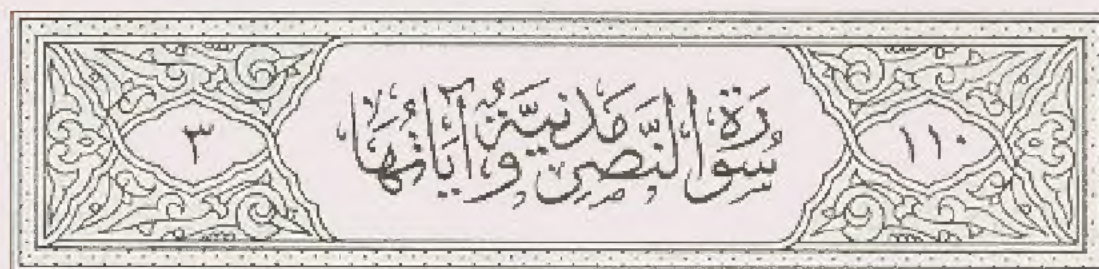 ١١٠
سُورَةُ النَّصْرِ مَدَنِيَّةٌ وَآيَاتُهَا
٣